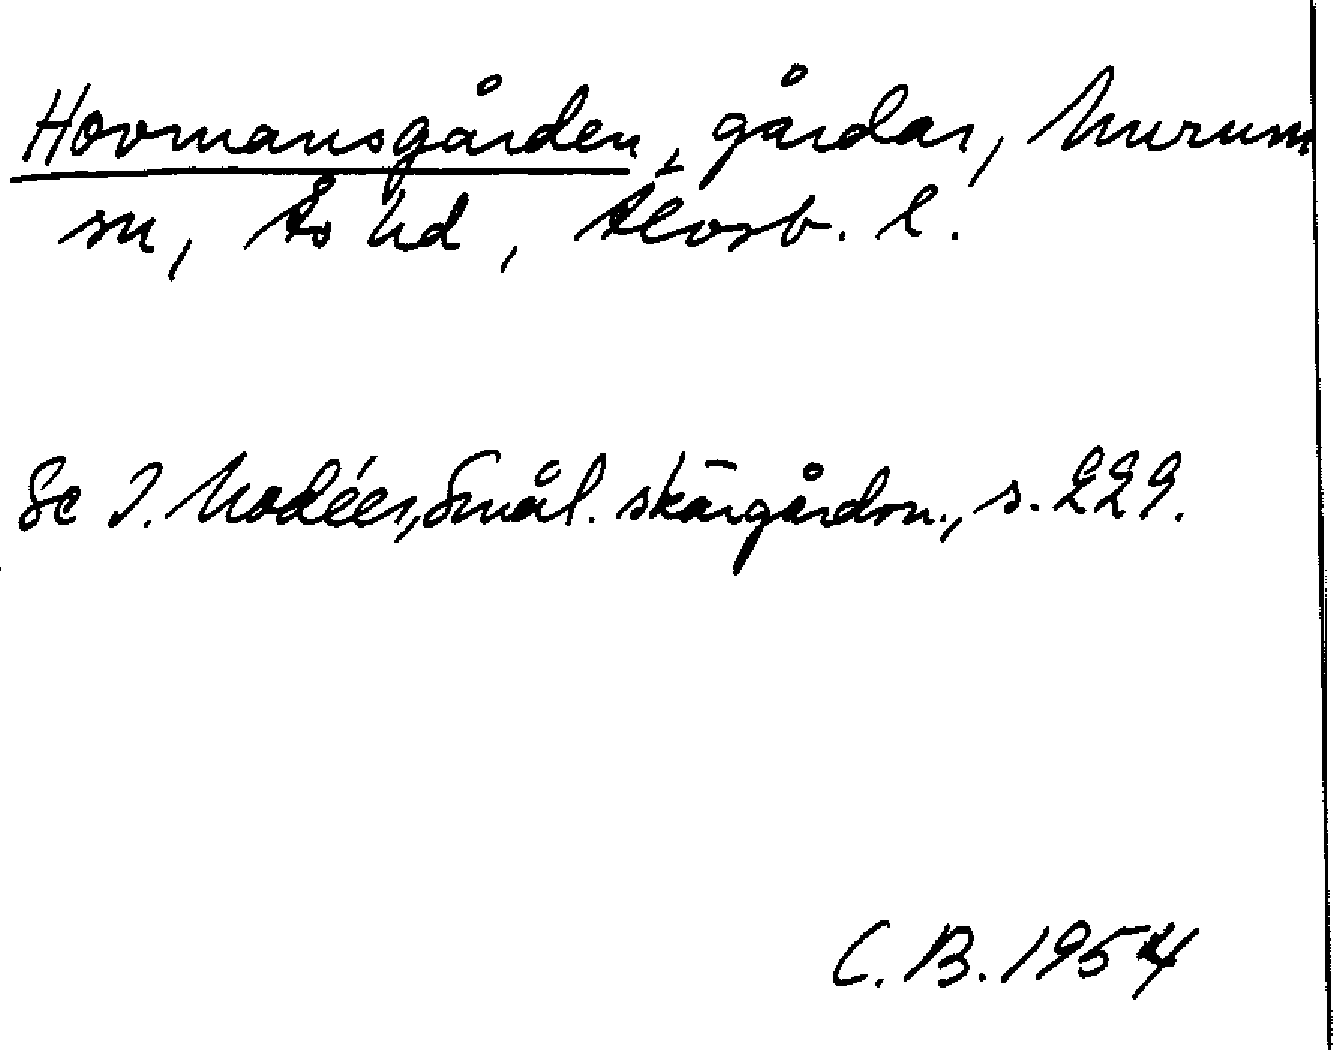 Hovmansgården, gårdar, Murum
sn, Ås hd, Älvsb. l.
Se I. Modéer, Smål. skärgårdsn., s. 229.
C. B. 1954